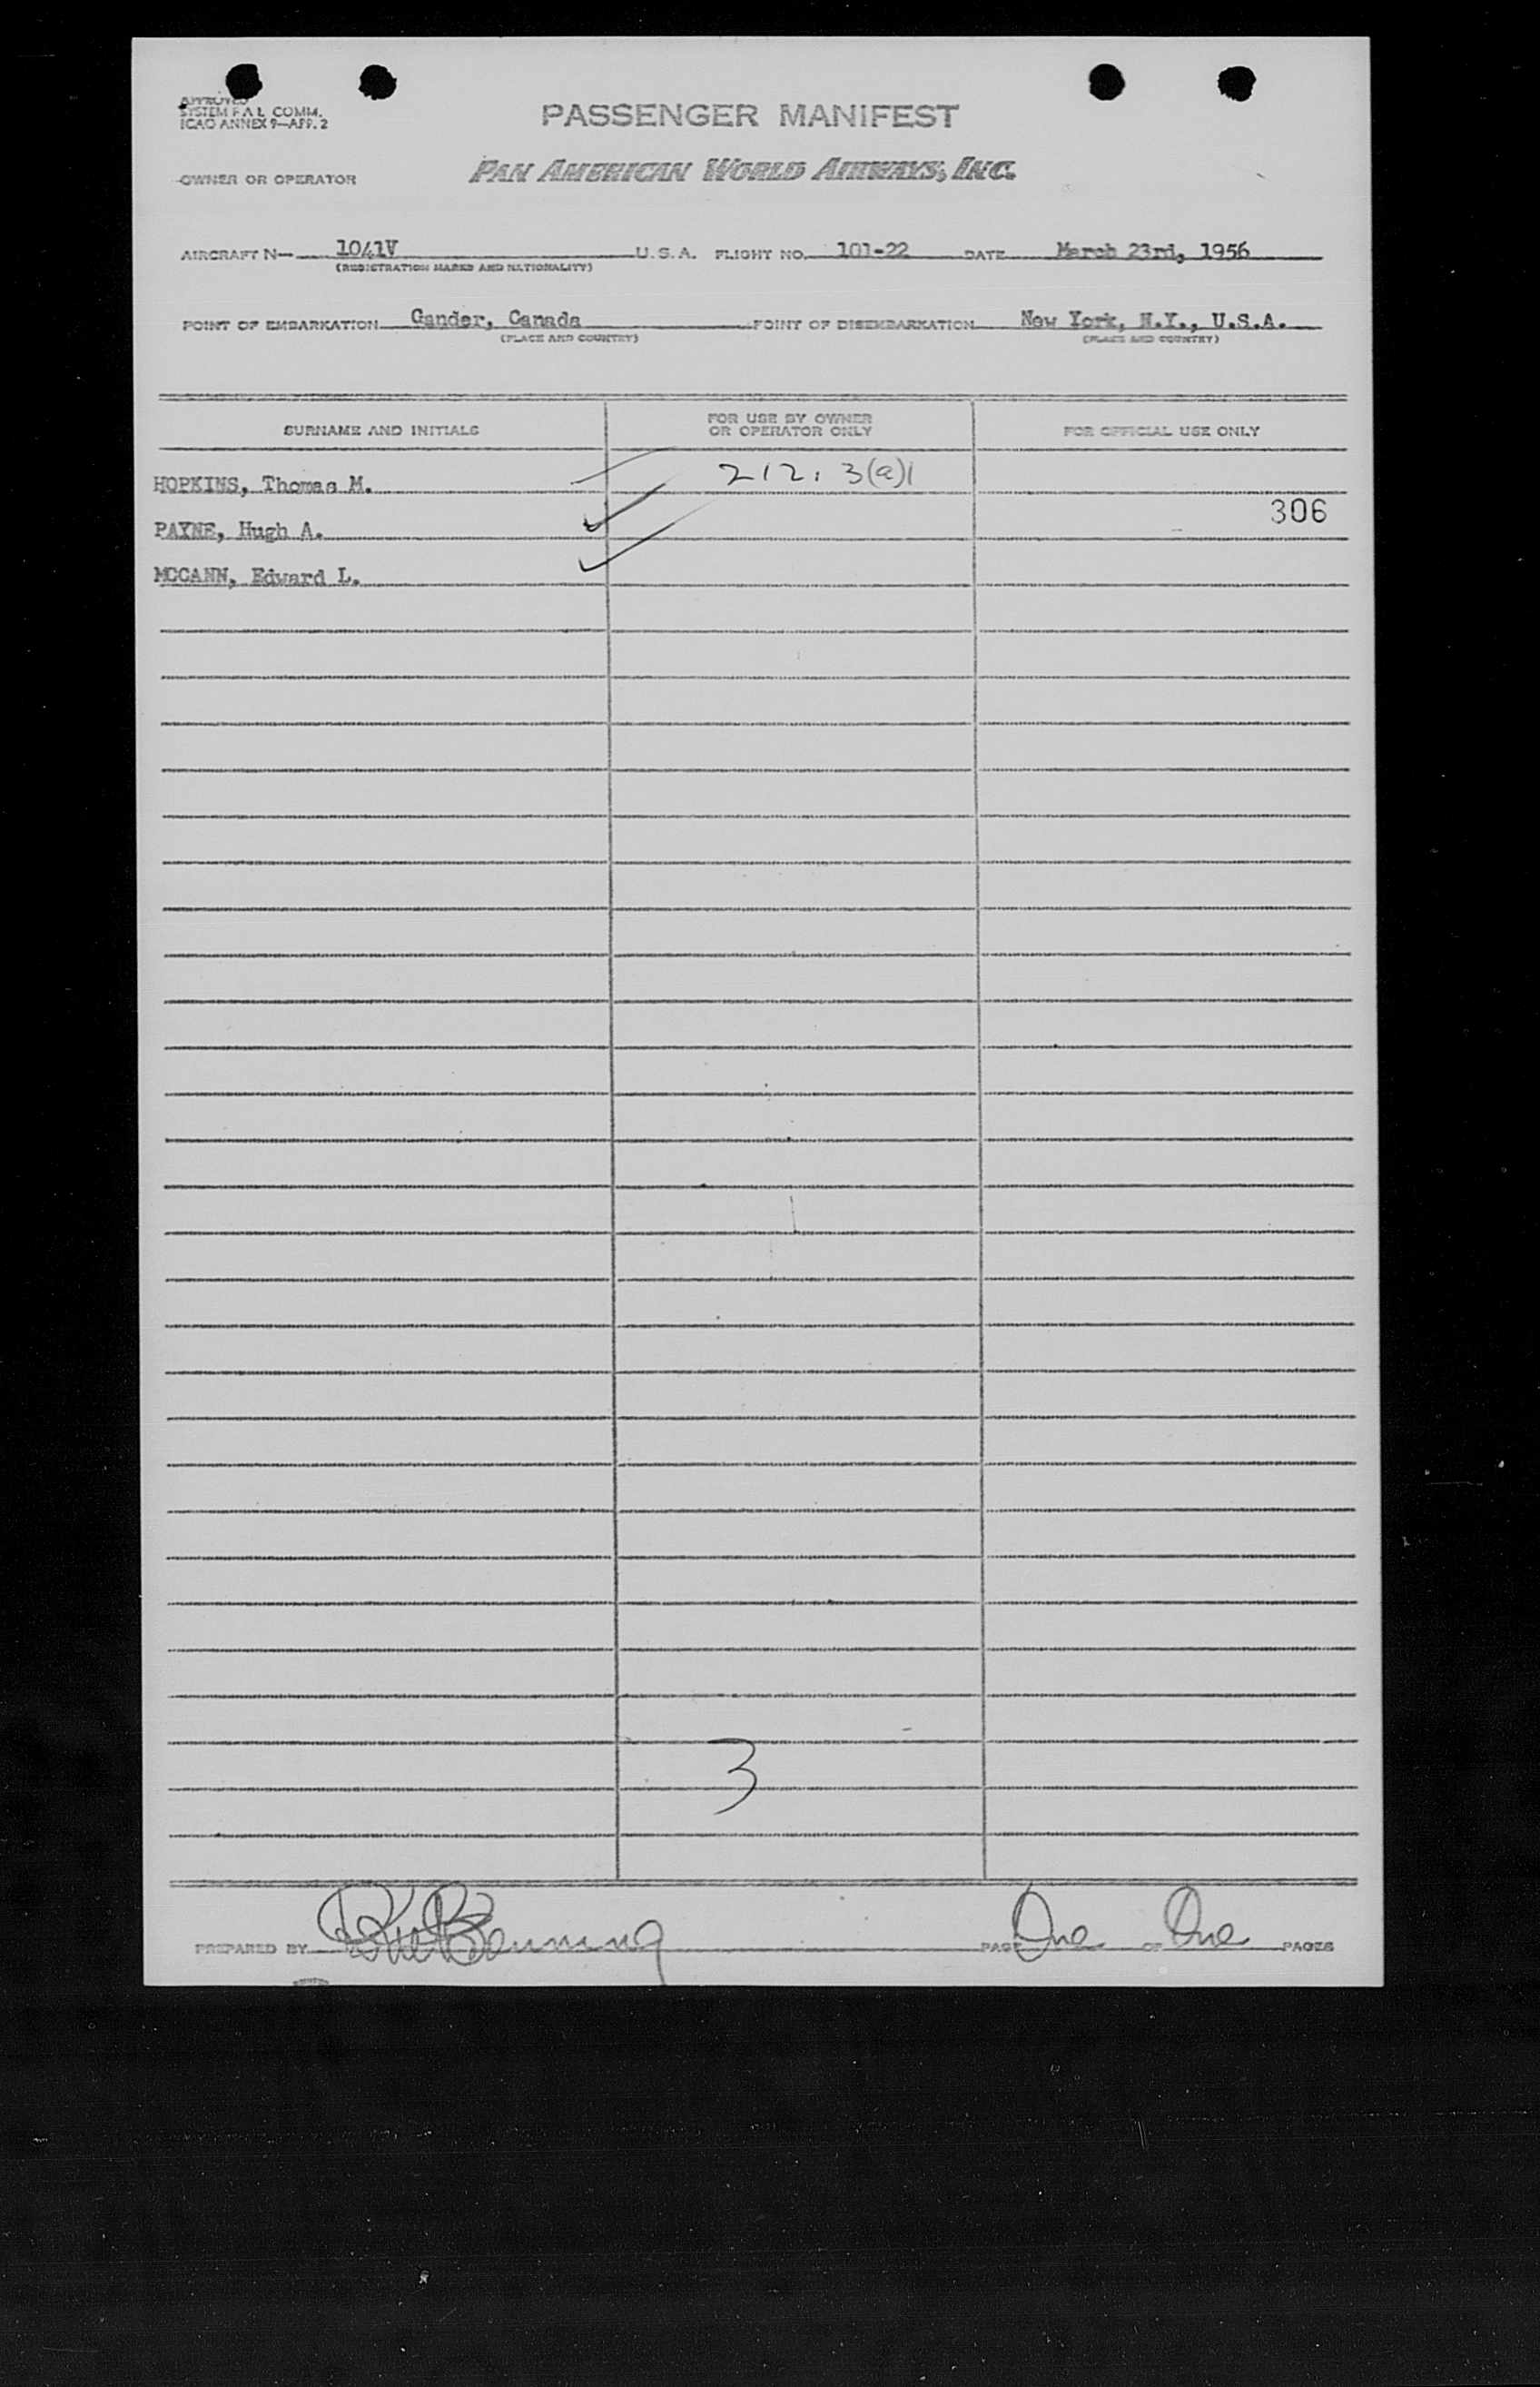 APPROVED
SYSTEM F A L COMM.
ICAO ANNEX 9—APP. 2
PASSENGER MANIFEST
OWNER OR OPERATOR PAN AMERICAN WORLD AIRWAYS, INC.
AIRCRAFT N— 1041V U. S. A. FLIGHT NO. 101-22 DATE March 23rd, 1956
(REGISTRATION MARKS AND NATIONALITY)
POINT OF EMBARKATION Gander, Canada POINT OF DISEMBARKATION New York, N.Y., U.S.A.
(PLACE AND COUNTRY) (PLACE AND COUNTRY)
SURNAME AND INITIALS FOR USE BY OWNER OR OPERATOR ONLY FOR OFFICIAL USE ONLY
HOPKINS, Thomas M. 212.3(a)1
306
PAYNE, Hugh A.
MCCANN, Edward L.
3
PREPARED BY PAGE One OF One PAGES